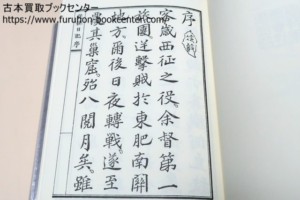 古本買取ブックセンター
https://www.furuhon-bookcenter.com/
序
客歳西征之役余督第一
旅團逆撃賊於東肥南關
地方爾後日夜轉戰遂至
其巣窟殆八閲月矣雖